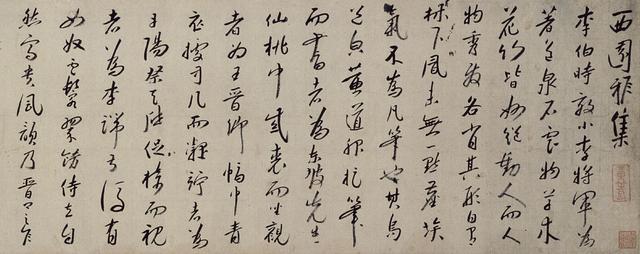 西園雅集
李伯時效小李將軍為
著色泉石雲物草木
花竹皆妙絕動人而人
物秀發各肖其形自有
林下風味無一點塵埃
氣不為凡筆也其烏
帽黃道服捉筆
而書者為東坡先生
仙桃巾紫裘而坐觀
者為王晉卿幅巾青
衣據方几而凝竚者為
丹陽蔡天啟捉椅而視
者為李端叔後有
女奴雲鬟翠飾侍立自
然富貴風韻乃晉卿之